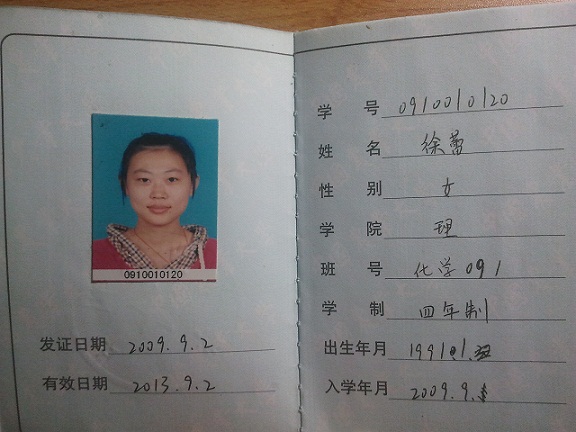 0910010120
发证日期 2009.9.2
有效日期 2013.9.2
学 号 0910010120
姓 名 徐蕾
性 别 女
学 院 理
班 号 化学091
学 制 四年制
出生年月 1991.1.
入学年月 2009.9.